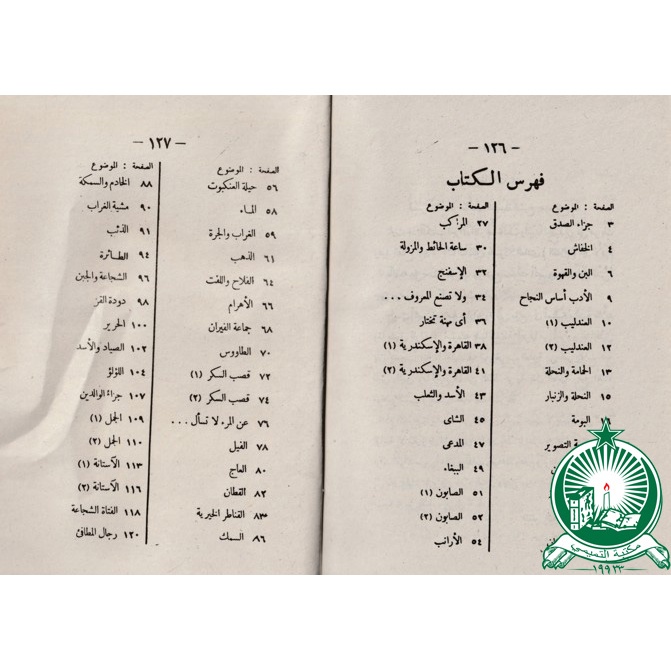 — ١٢٦ —
فهرس الكتاب
الصفحة : الموضوع
٣ جزاء الصدق
٤ الخفاش
٦ البن والقهوة
٩ الأدب أساس النجاح
١٠ العندليب (١)
١٢ العندليب (٢)
١٣ الحمامة والنحلة
١٥ النحلة والزنبار
البومة
التصوير
الصفحة : الموضوع
٢٧ المراكب
٣٠ ساعة الحائط والمزولة
٣٢ الإسفنج
٣٤ ولا تصنع المعروف ...
٣٦ أى مهنة تختار
٣٨ القاهرة والإسكندرية (١)
٤١ القاهرة والإسكندرية (٢)
٤٣ الأسد والثعلب
٤٥ الشاى
٤٧ المدعى
٤٩ الببغاء
٥١ الصابون (١)
٥٢ الصابون (٢)
٥٤ الأرانب
— ١٢٧ —
الصفحة : الموضوع
٥٦ حيلة العنكبوت
٥٨ المـاء
٥٩ الغراب والجرة
٦١ الذهب
٦٤ الفلاح واللفت
٦٦ الأهرام
٦٨ جماعة الفيران
٧٠ الطاووس
٧٢ قصب السكر (١)
٧٤ قصب السكر (٢)
٧٦ عن المرء لا تسأل ...
٧٨ الفيل
٨٠ العاج
٨٢ القطان
٨٣ القناطر الخيرية
٨٦ السمك
الصفحة : الموضوع
٨٨ الخادم والسمكة
٩٠ مشية الغراب
٩١ الذئب
٩٤ الطائرة
٩٦ الشجاعة والجبن
٩٨ دودة القز
١٠٠ الحرير
١٠٢ الصياد والأسد
١٠٤ اللؤلؤ
١٠٧ جزاء الوالدين
١٠٩ الجمل (١)
١١٠ الجمل (٢)
١١٣ الآستانة (١)
١١٦ الآستانة (٢)
١١٨ الفتاة الشجاعة
١٢٠ رجال المطافئ
مكتبة التميمي
١٩٩٢٣